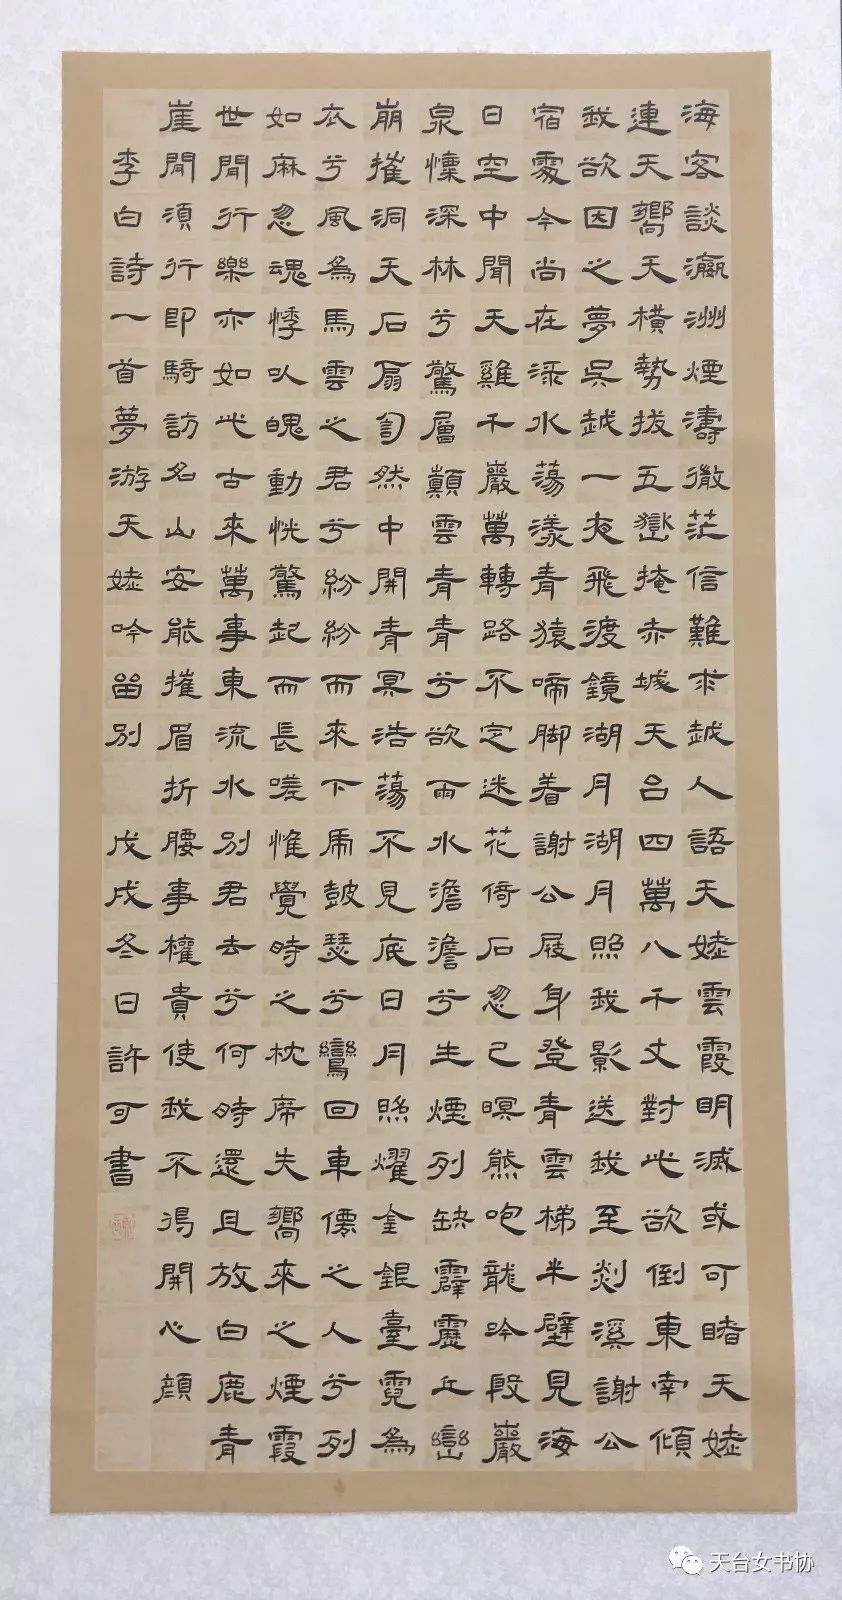 海客談瀛洲煙濤微茫信難求越人語天姥雲霞明滅或可睹天姥
連天嚮天橫勢拔五嶽掩赤城天台四萬八千丈對此欲倒東南傾
我欲因之夢吳越一夜飛渡鏡湖月湖月照我影送我至剡溪謝公
宿處今尚在淥水蕩漾青猿啼脚着謝公屐身登青雲梯半壁見海
日空中聞天雞千巖萬轉路不定迷花倚石忽已暝熊咆龍吟殷巖
泉慄深林兮驚層顛雲青青兮欲雨水澹澹兮生煙列缺霹靂丘巒
崩摧洞天石扇訇然中開青冥浩蕩不見底日月照耀金銀臺霓為
衣兮風為馬雲之君兮紛紛而來下虎鼓瑟兮鸞回車僊之人兮列
如麻忽魂悸以魄動恍驚起而長嗟惟覺時之枕席失嚮來之煙霞
世間行樂亦如此古來萬事東流水別君去兮何時還且放白鹿青
崖間須行即騎訪名山安能摧眉折腰事權貴使我不得開心顔
李白詩一首夢游天姥吟留別 戊戌冬日許可書
天台女书协